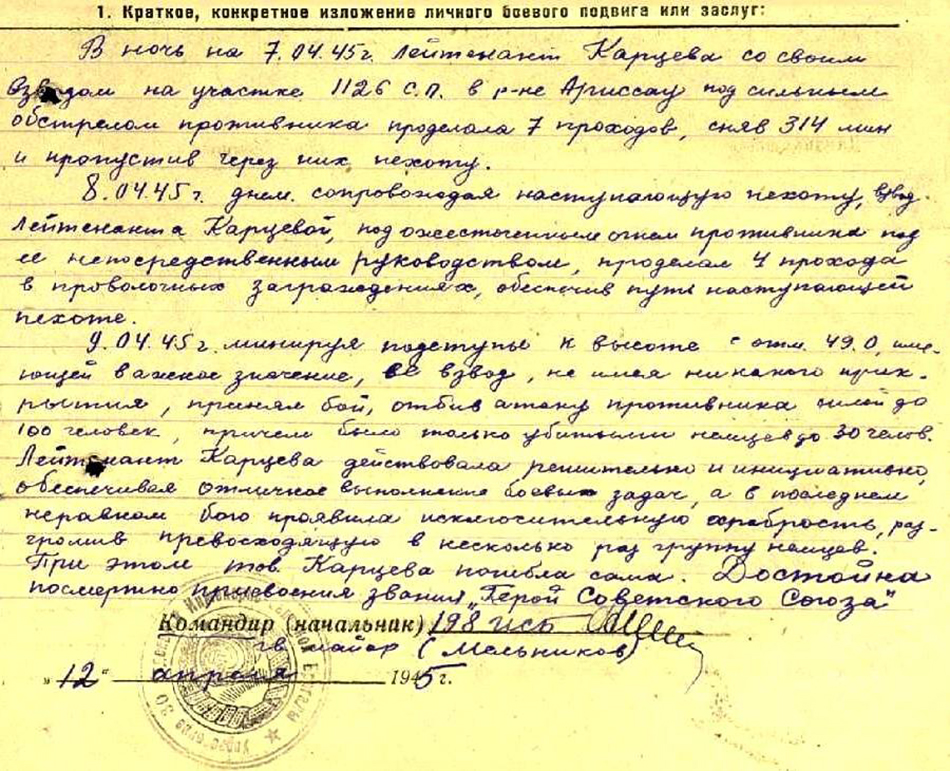 1. Краткое, конкретное изложение личного боевого подвига или заслуг:
В ночь на 7.04.45г. лейтенант Карцева со своим
взводом на участке 1126 с.п. в р-не Ариссау под сильным
обстрелом противника проделала 7 проходов, сняв 314 мин
и пропустив через них пехоту.
8.04.45г. днем. сопровождая наступающую пехоту, взвод
лейтенанта Карцевой, под ожесточенным огнем противника под
ее непосредственным руководством, проделал 4 прохода
в проволочных заграждениях, обеспечив путь наступающей
пехоте.
9.04.45г. минируя подступы к высоте с отм. 49.0, име-
ющей важное значение, ее взвод, не имея никакого прик-
рытия, принял бой, отбив атаку противника силой до
100 человек, причем было только убитыми немцев до 30 челов.
Лейтенант Карцева действовала решительно и инициативно,
обеспечивая отличное выполнение боевых задач, а в последнем
неравном бою проявила исключительную храбрость, раз-
громив превосходящую в несколько раз группу немцев.
При этом тов. Карцева погибла сама. Достойна
посмертно присвоения звания „Герой Советского Союза"
Командир (начальник) 198 исб
гв майор (Мельников)
„12" апреля 1945 г.